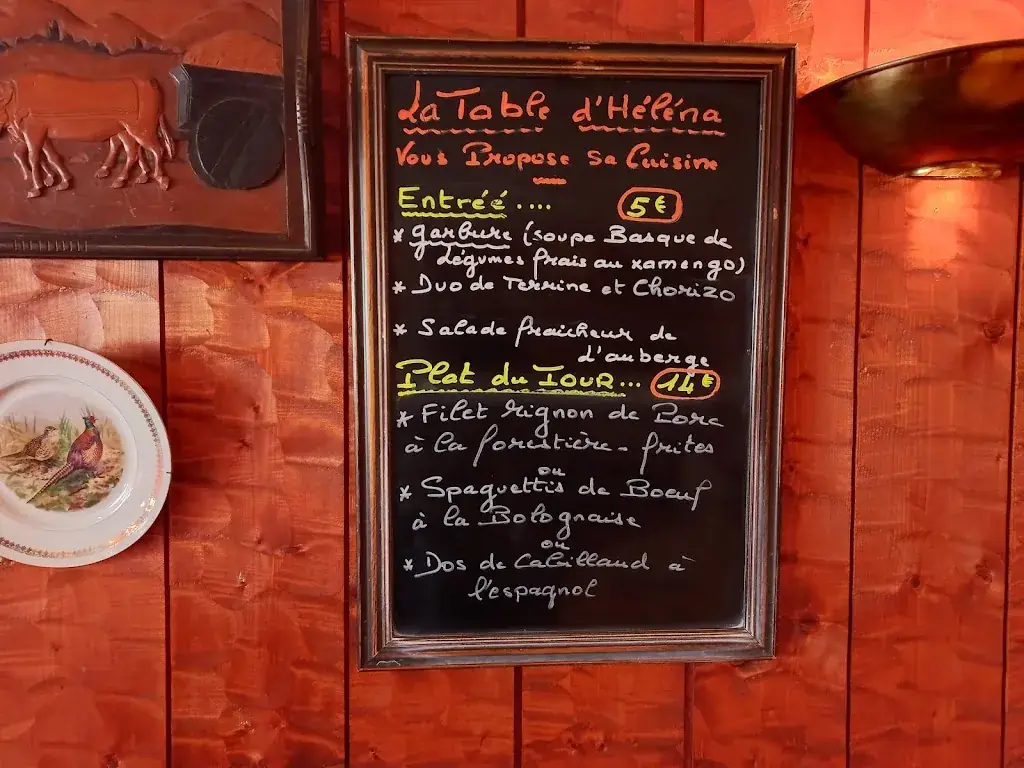 La Table d'Héléna
Vous Propose sa Cuisine
Entréé .... 5€
* garbure (soupe Basque de
légumes frais au xamengo)
* Duo de Terrine et Chorizo
* Salade fraicheur de
d'auberge
Plat du Jour... 14€
* Filet Mignon de Porc
à la forestière - frites
ou
* Spaguettis de Boeuf
à la Bolognaise
ou
* Dos de Cabillaud à
l'espagnol